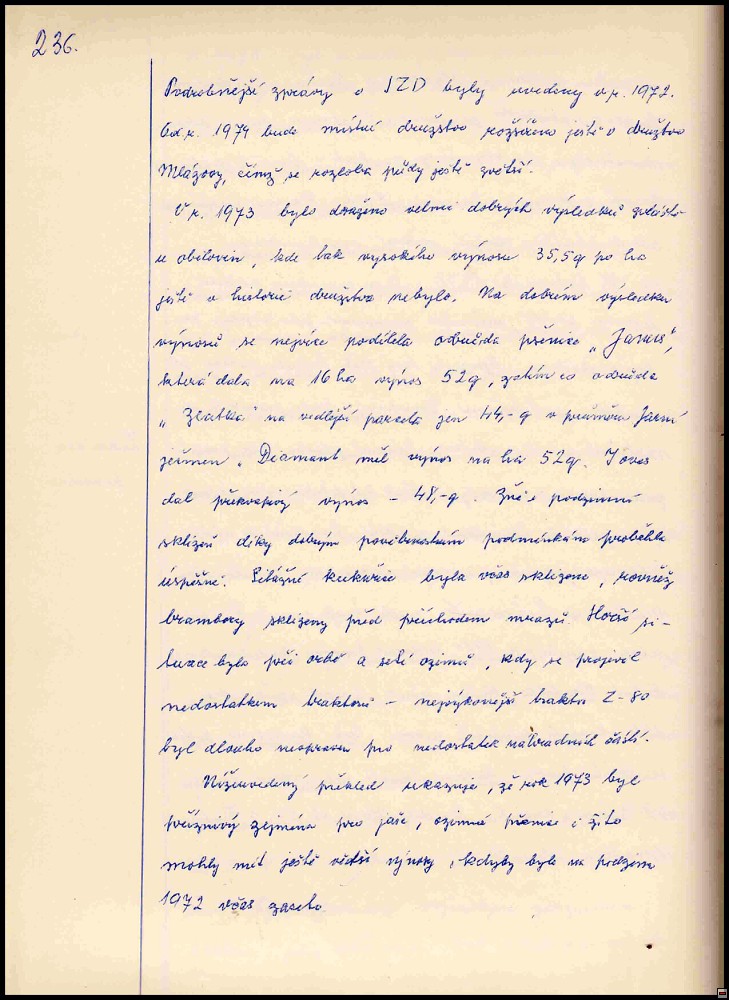 236.
Podrobnější zprávy o JZD byly uvedeny v r. 1972.
Od r. 1974 bude místní družstvo rozšířeno ještě o družstvo
Mlázovy, čímž se rozloha půdy ještě zvětší.
V r. 1973 bylo dosaženo velmi dobrých výsledků zvláště
u obilovin, kde tak vysokého výnosu 35,5q po ha
ještě v historii družstva nebylo. Na dobrém výsledku
výnosů se nejvíce podílela odrůda pšenice „Jarus",
která dala na 16 ha výnos 52q, zatím co odrůda
„Zlatka" na vedlejší parcele jen 44,-q v průměru. Jarní
ječmen „Diamant měl výnos na ha 52q. I oves
dal překvapivý výnos - 48,-q. Žně i podzimní
sklizeň díky dobrým povětrnostním podmínkám proběhla
úspěšně. Silážní kukuřice byla včas sklizena, rovněž
brambory sklizeny před příchodem mrazů. Horší si-
tuace byla při orbě a setí ozimů, kdy se projevil
nedostatkem traktorů - nejvýkonější traktor Z-80
byl dlouho neopraven pro nedostatek náhradních částí.
Nížeuvedený přehled ukazuje, že rok 1973 byl
příznivý zejména pro jaře, ozimná pšenice i žito
mohly mít ještě větší výnosy, kdyby bylo na podzim
1972 včas zaseto.